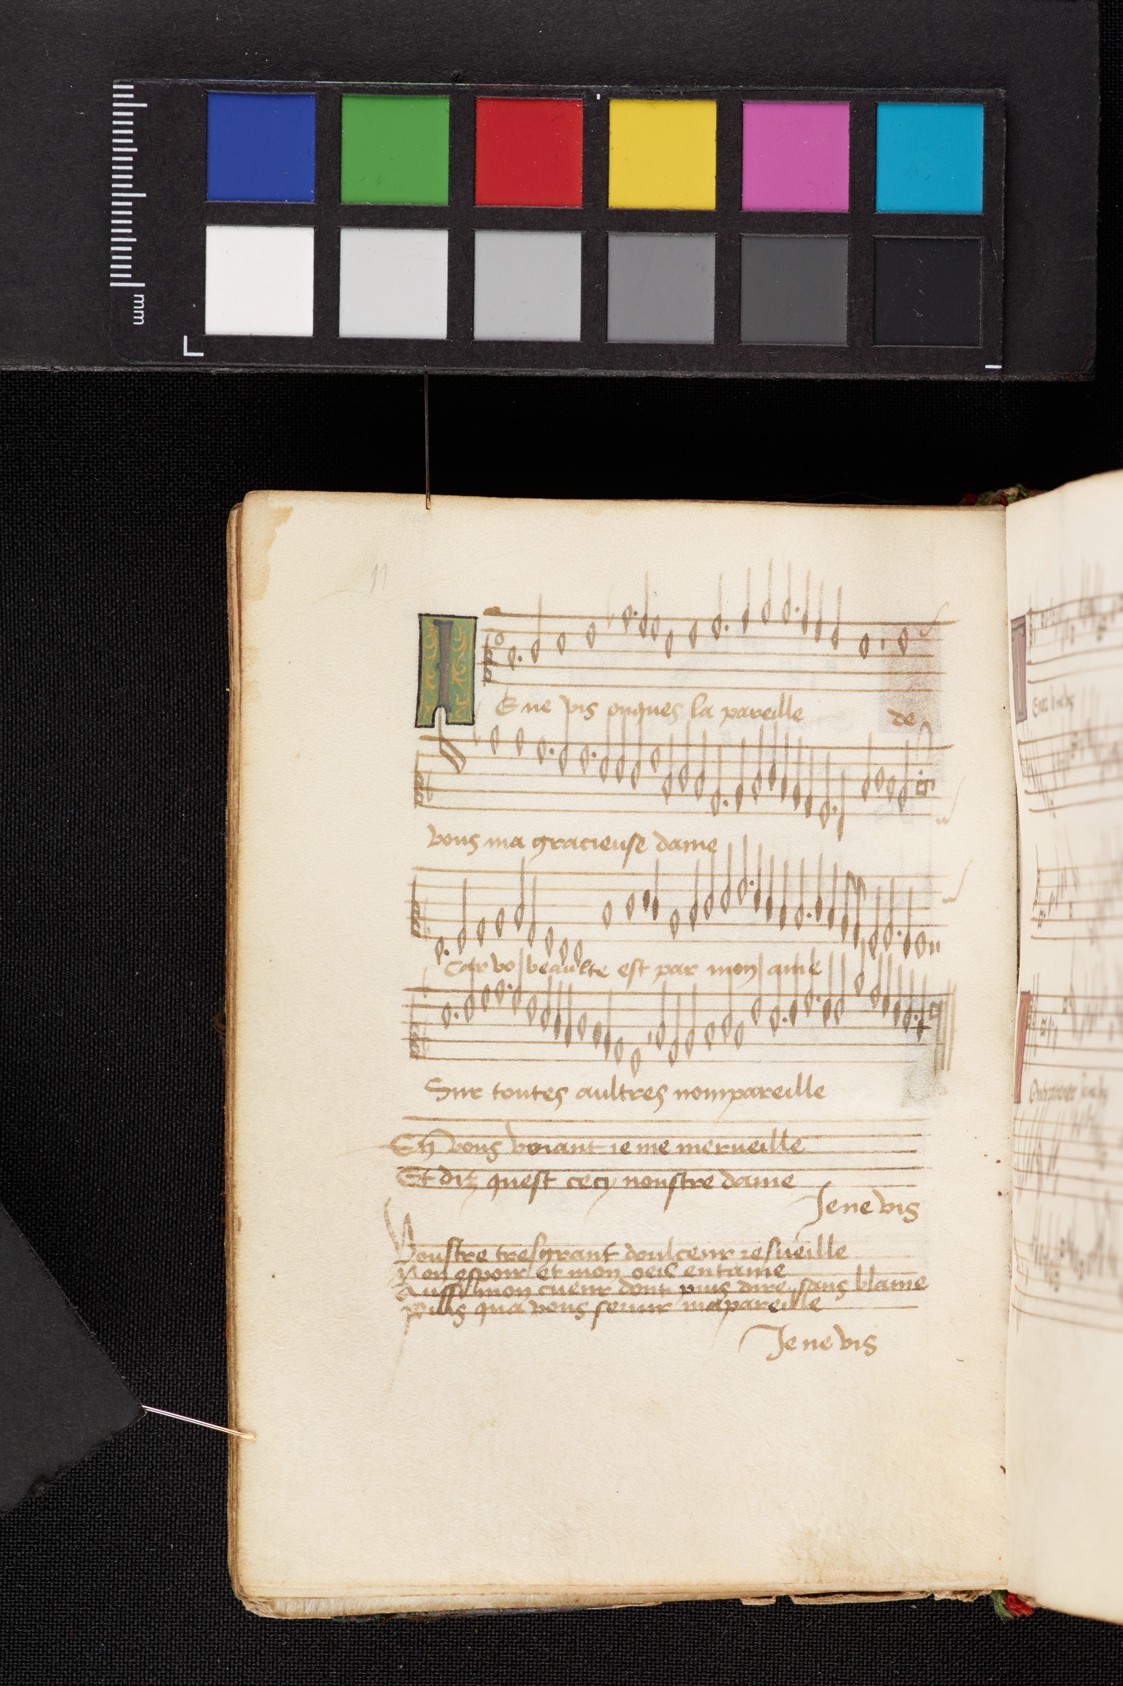 mm
11
Je ne vis onques la pareille de
vous ma gracieuse dame
Car vo beaulte est par mon ame
Sur toutes aultres nompareille
En vous voiant ie me merveille
Et diz quest cecy noustre dame
Je ne vis
Voustre tresgrant doulceur resueille
Mon espoir et mon oeil entame
Aussi mon cueur dont puis dire sans blame
Puis qua vous seruir mapareille
Je ne vis